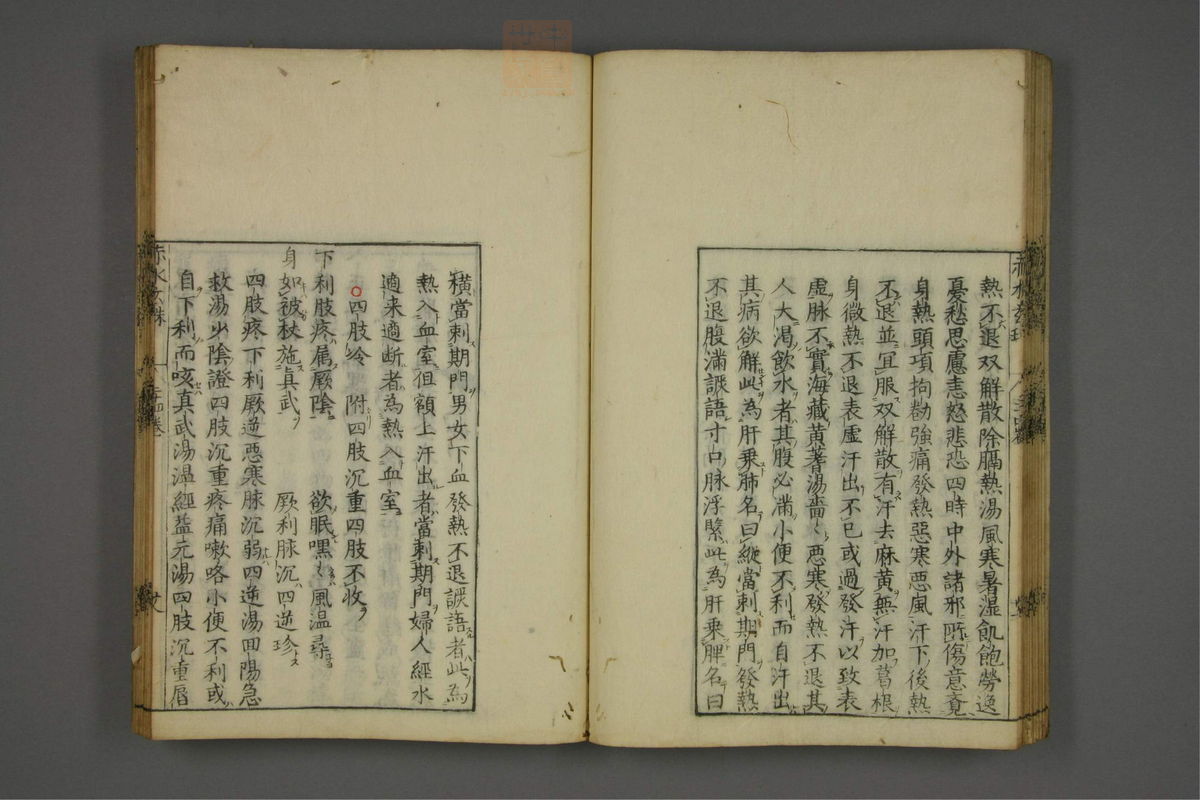 熱不退双解散除膈熱湯風寒暑湿飢飽勞逸
憂愁思慮恚怒悲恐四時中外諸邪所傷意竟
身熱頭項拘勧強痛發熱惡寒悪風汗下後熱
不退並冝服双解散有汗去麻黄無汗加葛根
身微熱不退表虚汗出不已或過發汗以致表
虚脉不實海藏黄蓍湯嗇〻悪寒發熱不退其
人大渇飲水者其腹必滿小便不利而自汗出
其病欲解此為肝乗肺名曰縦當刺期門發熱
不退腹滿譫語寸口脉浮緊此為肝乗脾名曰
横當刺期門男女下血發熱不退譫語者此為
熱入血室但額上汗出者當刺期門婦人經水
適来適断者為熱入血室
○四肢冷 附四肢沉重四肢不收
下利肢疼属厥陰 欲眠嘿〻風温尋
身如被杖施真武 厥利脉沉四逆珍
四肢疼下利厥逆惡寒脉沉弱四逆湯回陽急
救湯少陰證四肢沉重疼痛嗽咯小便不利或
自下利而咳真武湯温經益元湯四肢沉重唇
赤水玄珠
二十四卷